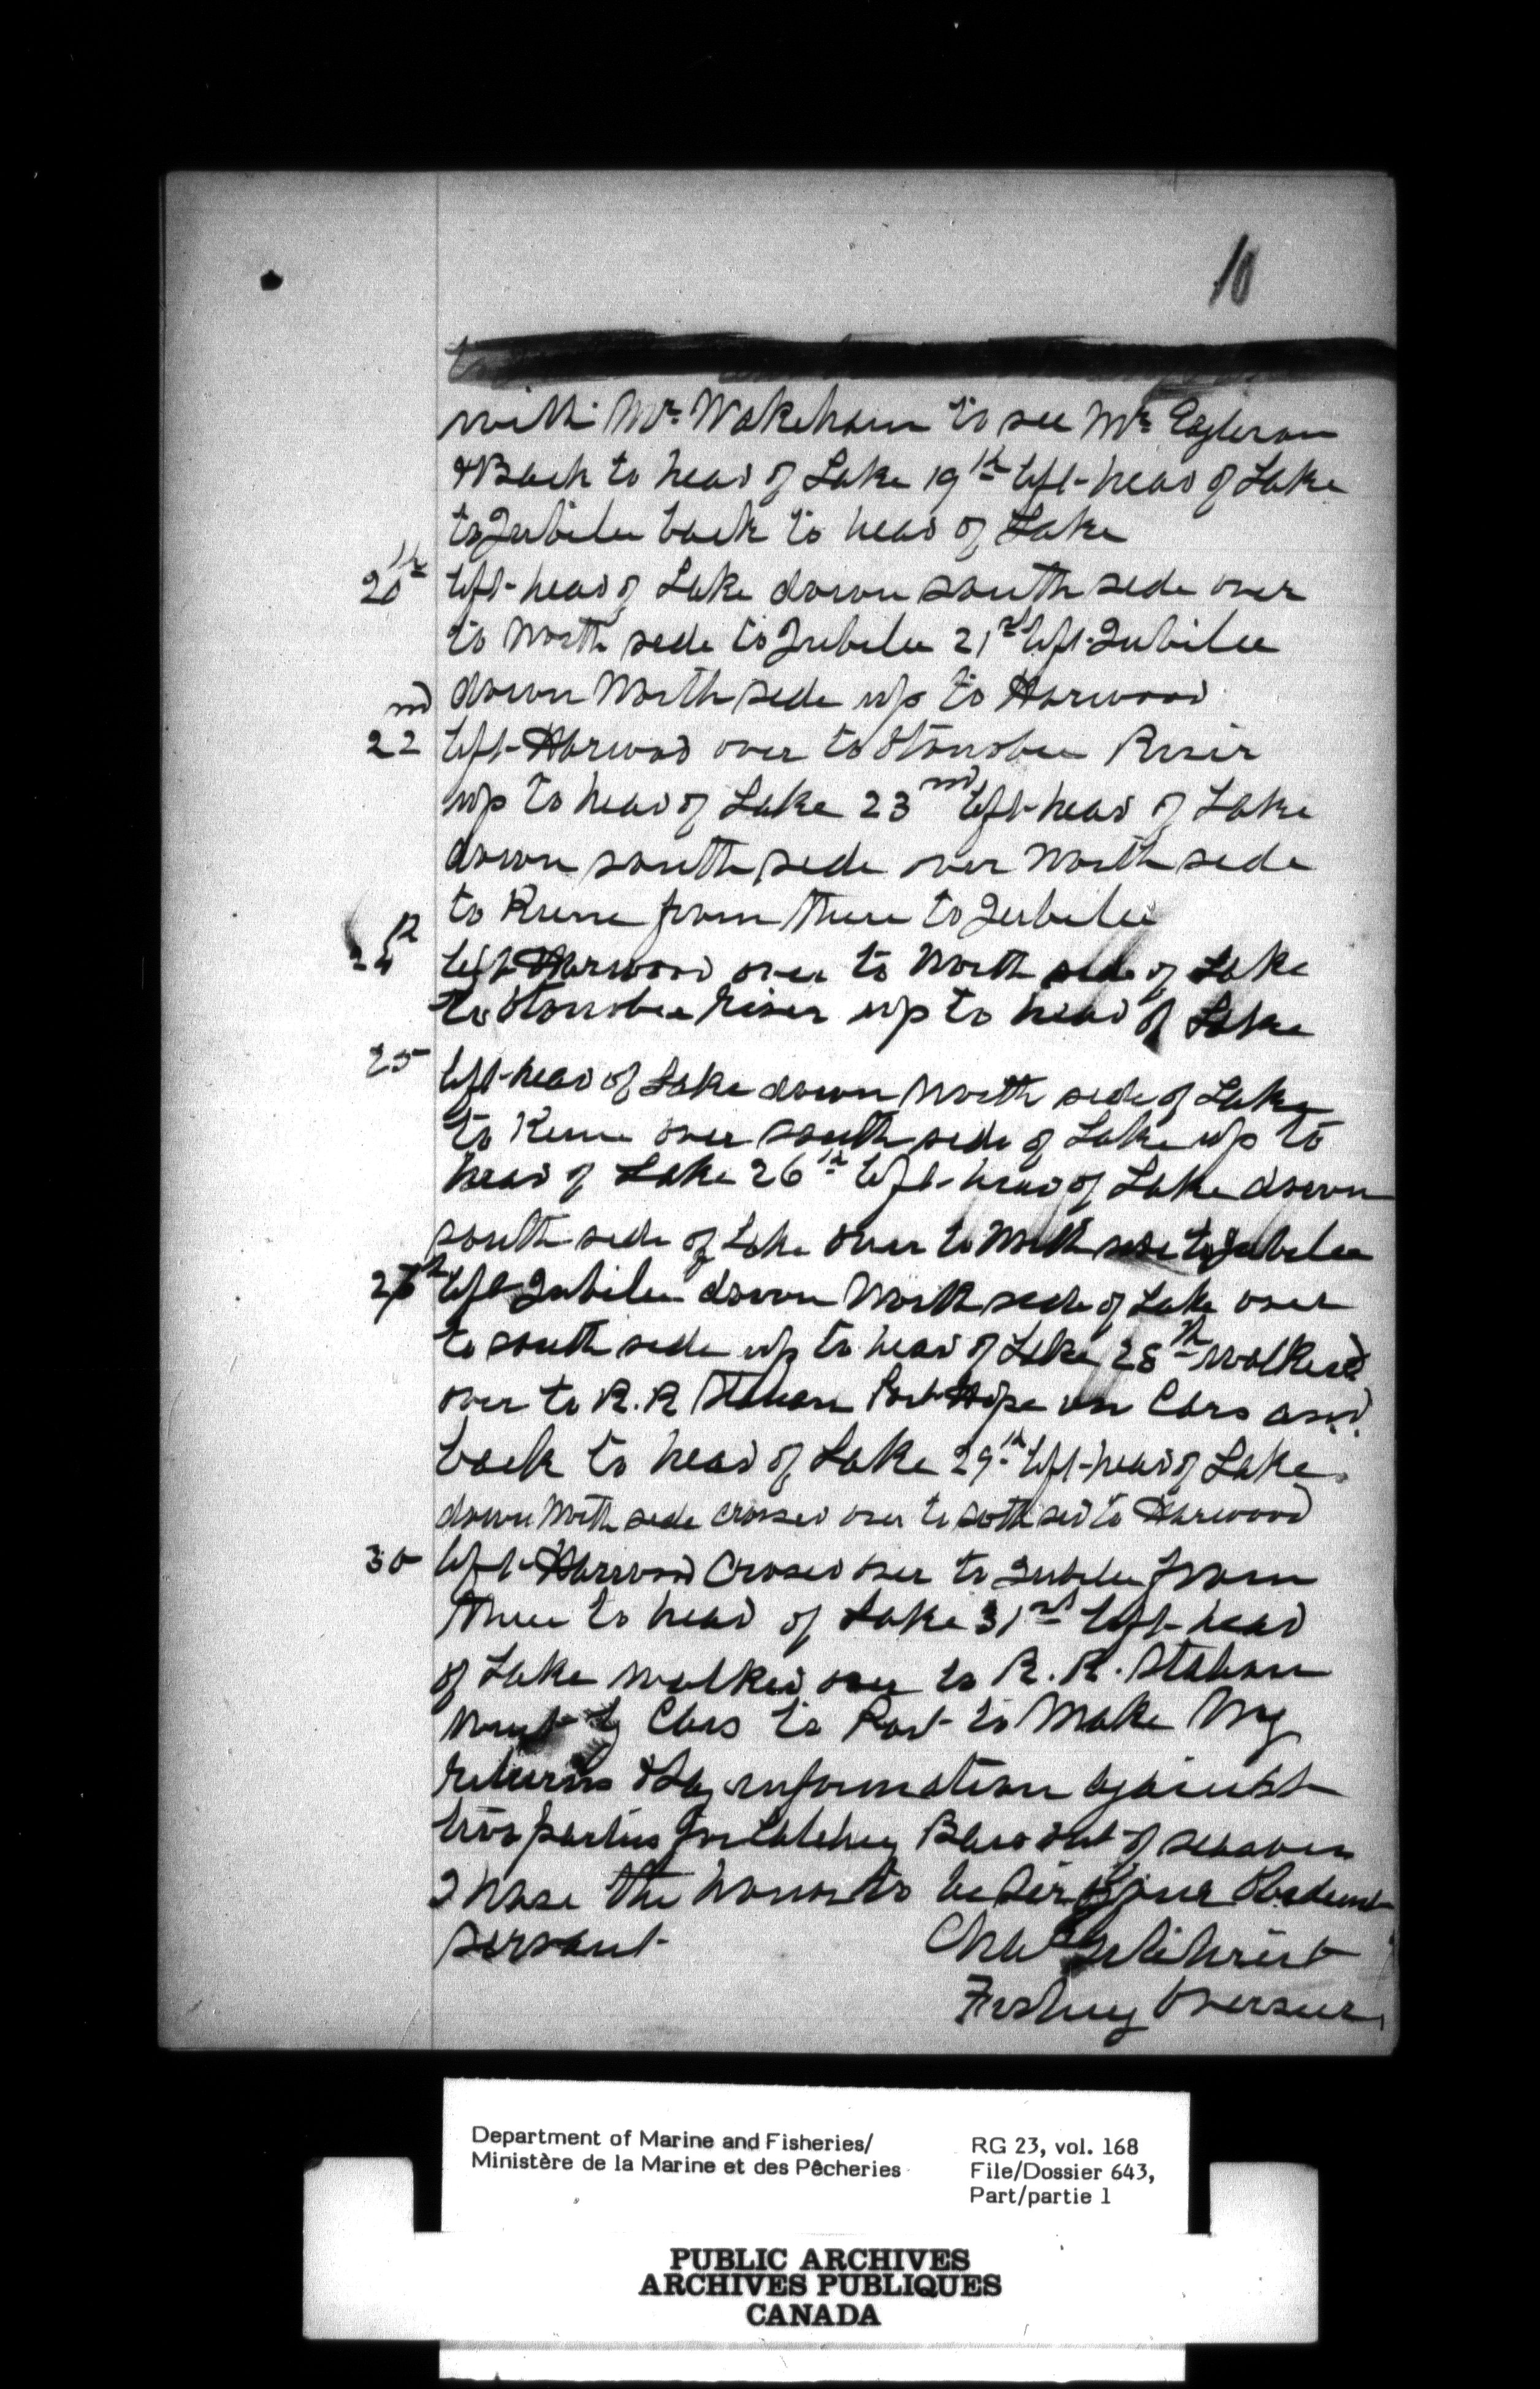 10
with Mr. Wakeham to see Mr.
& Back to head of Lake 19th left head of Lake
to Jubilee back to head of Lake
20th left head of Lake down south side over
to North side to Jubilee 21st left Jubilee
down North side up to Harwood
22nd left Harwood over to Otonobee River
up to head of Lake 23rd left head of Lake
down south side over North side
to from there to Jubilee
24th left Harwood over to North side of Lake
to Otonobee River up to head of Lake
25 left head of Lake down North side of Lake
to over south side of Lake up to
head of Lake 26th left head of Lake down
south side of Lake over to North side to Jubilee
27th left Jubilee down North side of Lake over
to south side up to head of Lake 28th walked
over to R. R Station Port Hope on Cars and
back to head of Lake 29th left head of Lake
down North side crossed over to soth sid to Harwood
30 left Harwood Crossed over to Jubilee from
there to head of Lake 31st left head
of Lake walked over to R. R. Station
went by Cars to Port to Make My
returns & Lay information against
two parties for Catching Bass out of season
I have the honor to be Sir your Obedient
servant Chas Gilchrist
Fishery Overseer
Department of Marine and Fisheries/
Ministère de la Marine et des Pêcheries
RG 23, vol. 168
File/Dossier 643,
Part/partie 1
PUBLIC ARCHIVES
ARCHIVES PUBLIQUES
CANADA